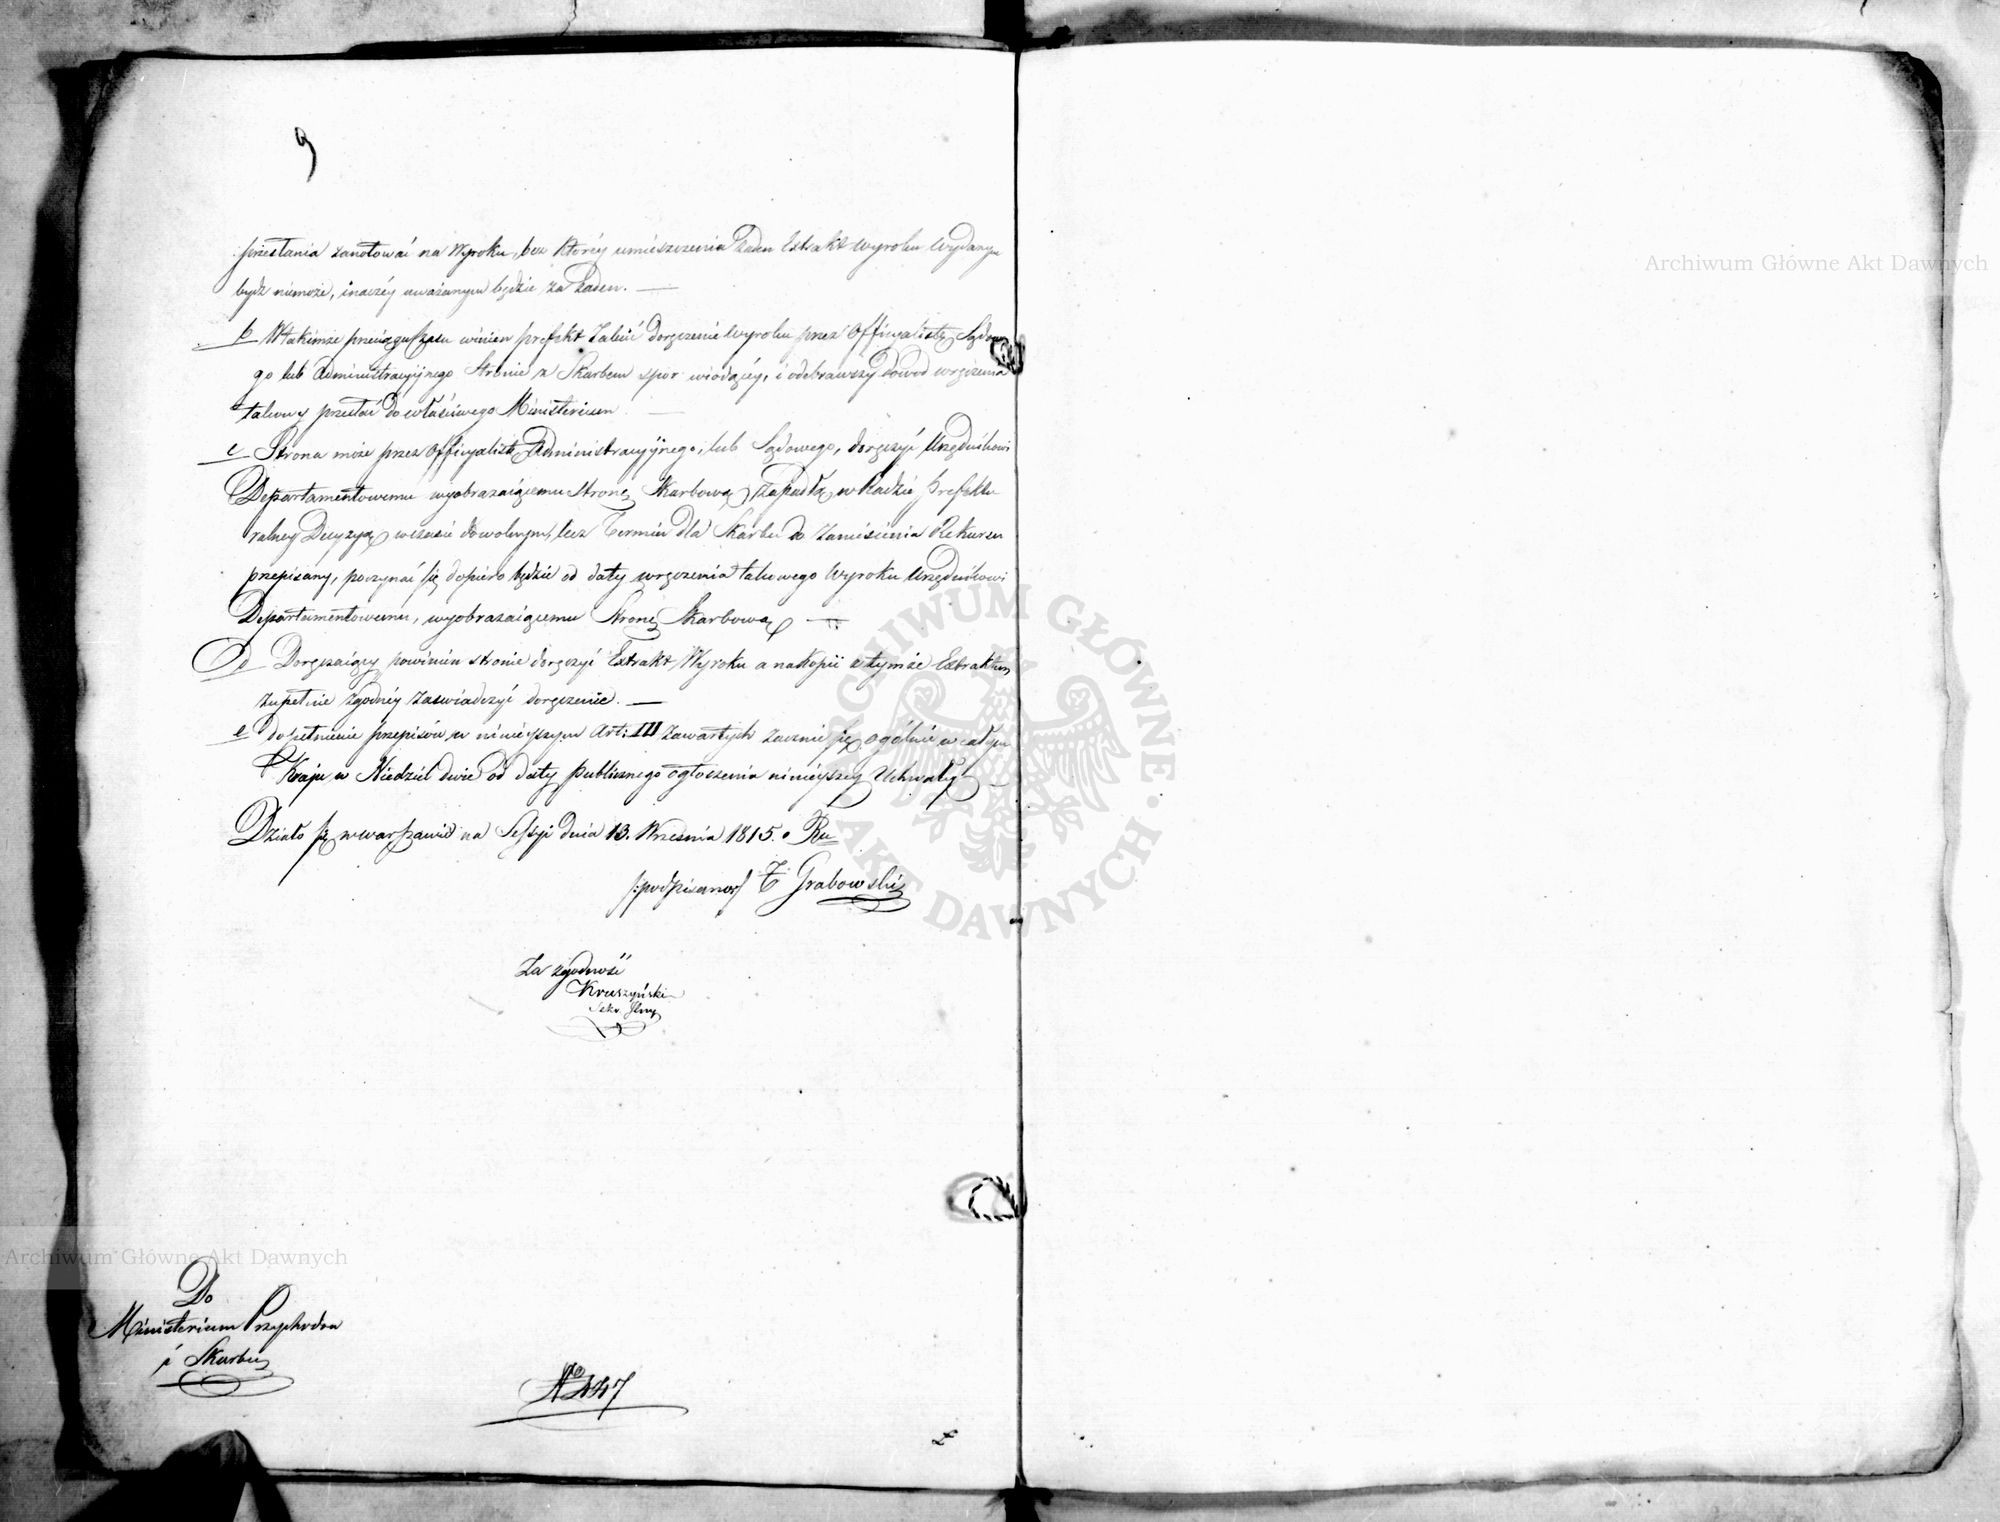 9
przesłania zanotować na Wyroku, bez któréy umieszczenia żaden Extrakt wyroku wydanym
bydź niemoże, inaczéy uważanym będzie za żaden. —
b W takimże przeciągu czasu winien prefekt zalecić doręczenie wyroku przez Officyalistę Sądowe-
go lub administracyjnego Stronie z Skarbem spór wiodącéy, i odebrawszy dowód wręczenia
takowy przesłać do właściwego Ministerium. —
c Strona może przez Officyalistę Administracyjnego, lub Sądowego, doręczyć Urzędnikowi
Departamentowemu wyobrażaiącemu Stronę Skarbową, zapadłą w Radzie Prefektu-
ralney Decyzyą w czasie dowolnym, lecz Termin dla Skarbu do zaniesienia Rekursu
przepisany, poczynać się dopiero będzie od daty wręczenia takowego Wyroku Urzędnikowi
Departamentowemu, wyobrażaiącemu Stronę Skarbową —
d Doręczaiący powinien stronie doręczyć Extrakt Wyroku a na kopii z tymże Extraktem
zupełnie zgodnéy zaświadczyć doręczenie. —
e dopełnienie przepisów w ninieyszym Art: III zawartych zacznie się ogólnie w całym
Kraju w Niedziel dwie od daty publicznego ogłoszenia ninieyszey Uchwały
Działo się w Warszawie na Sessyi dnia 13. Września 1815. Ru
/:podpisano:/ T Grabowski
Za zgodność
Kruszyński
Sekr. Jlny
Do
Ministerium Przychodów
i Skarbu
No 447
Archiwum Główne Akt Dawnych
Archiwum Główne Akt Dawnych
ARCHIWUM GŁÓWNE · AKT DAWNYCH ·